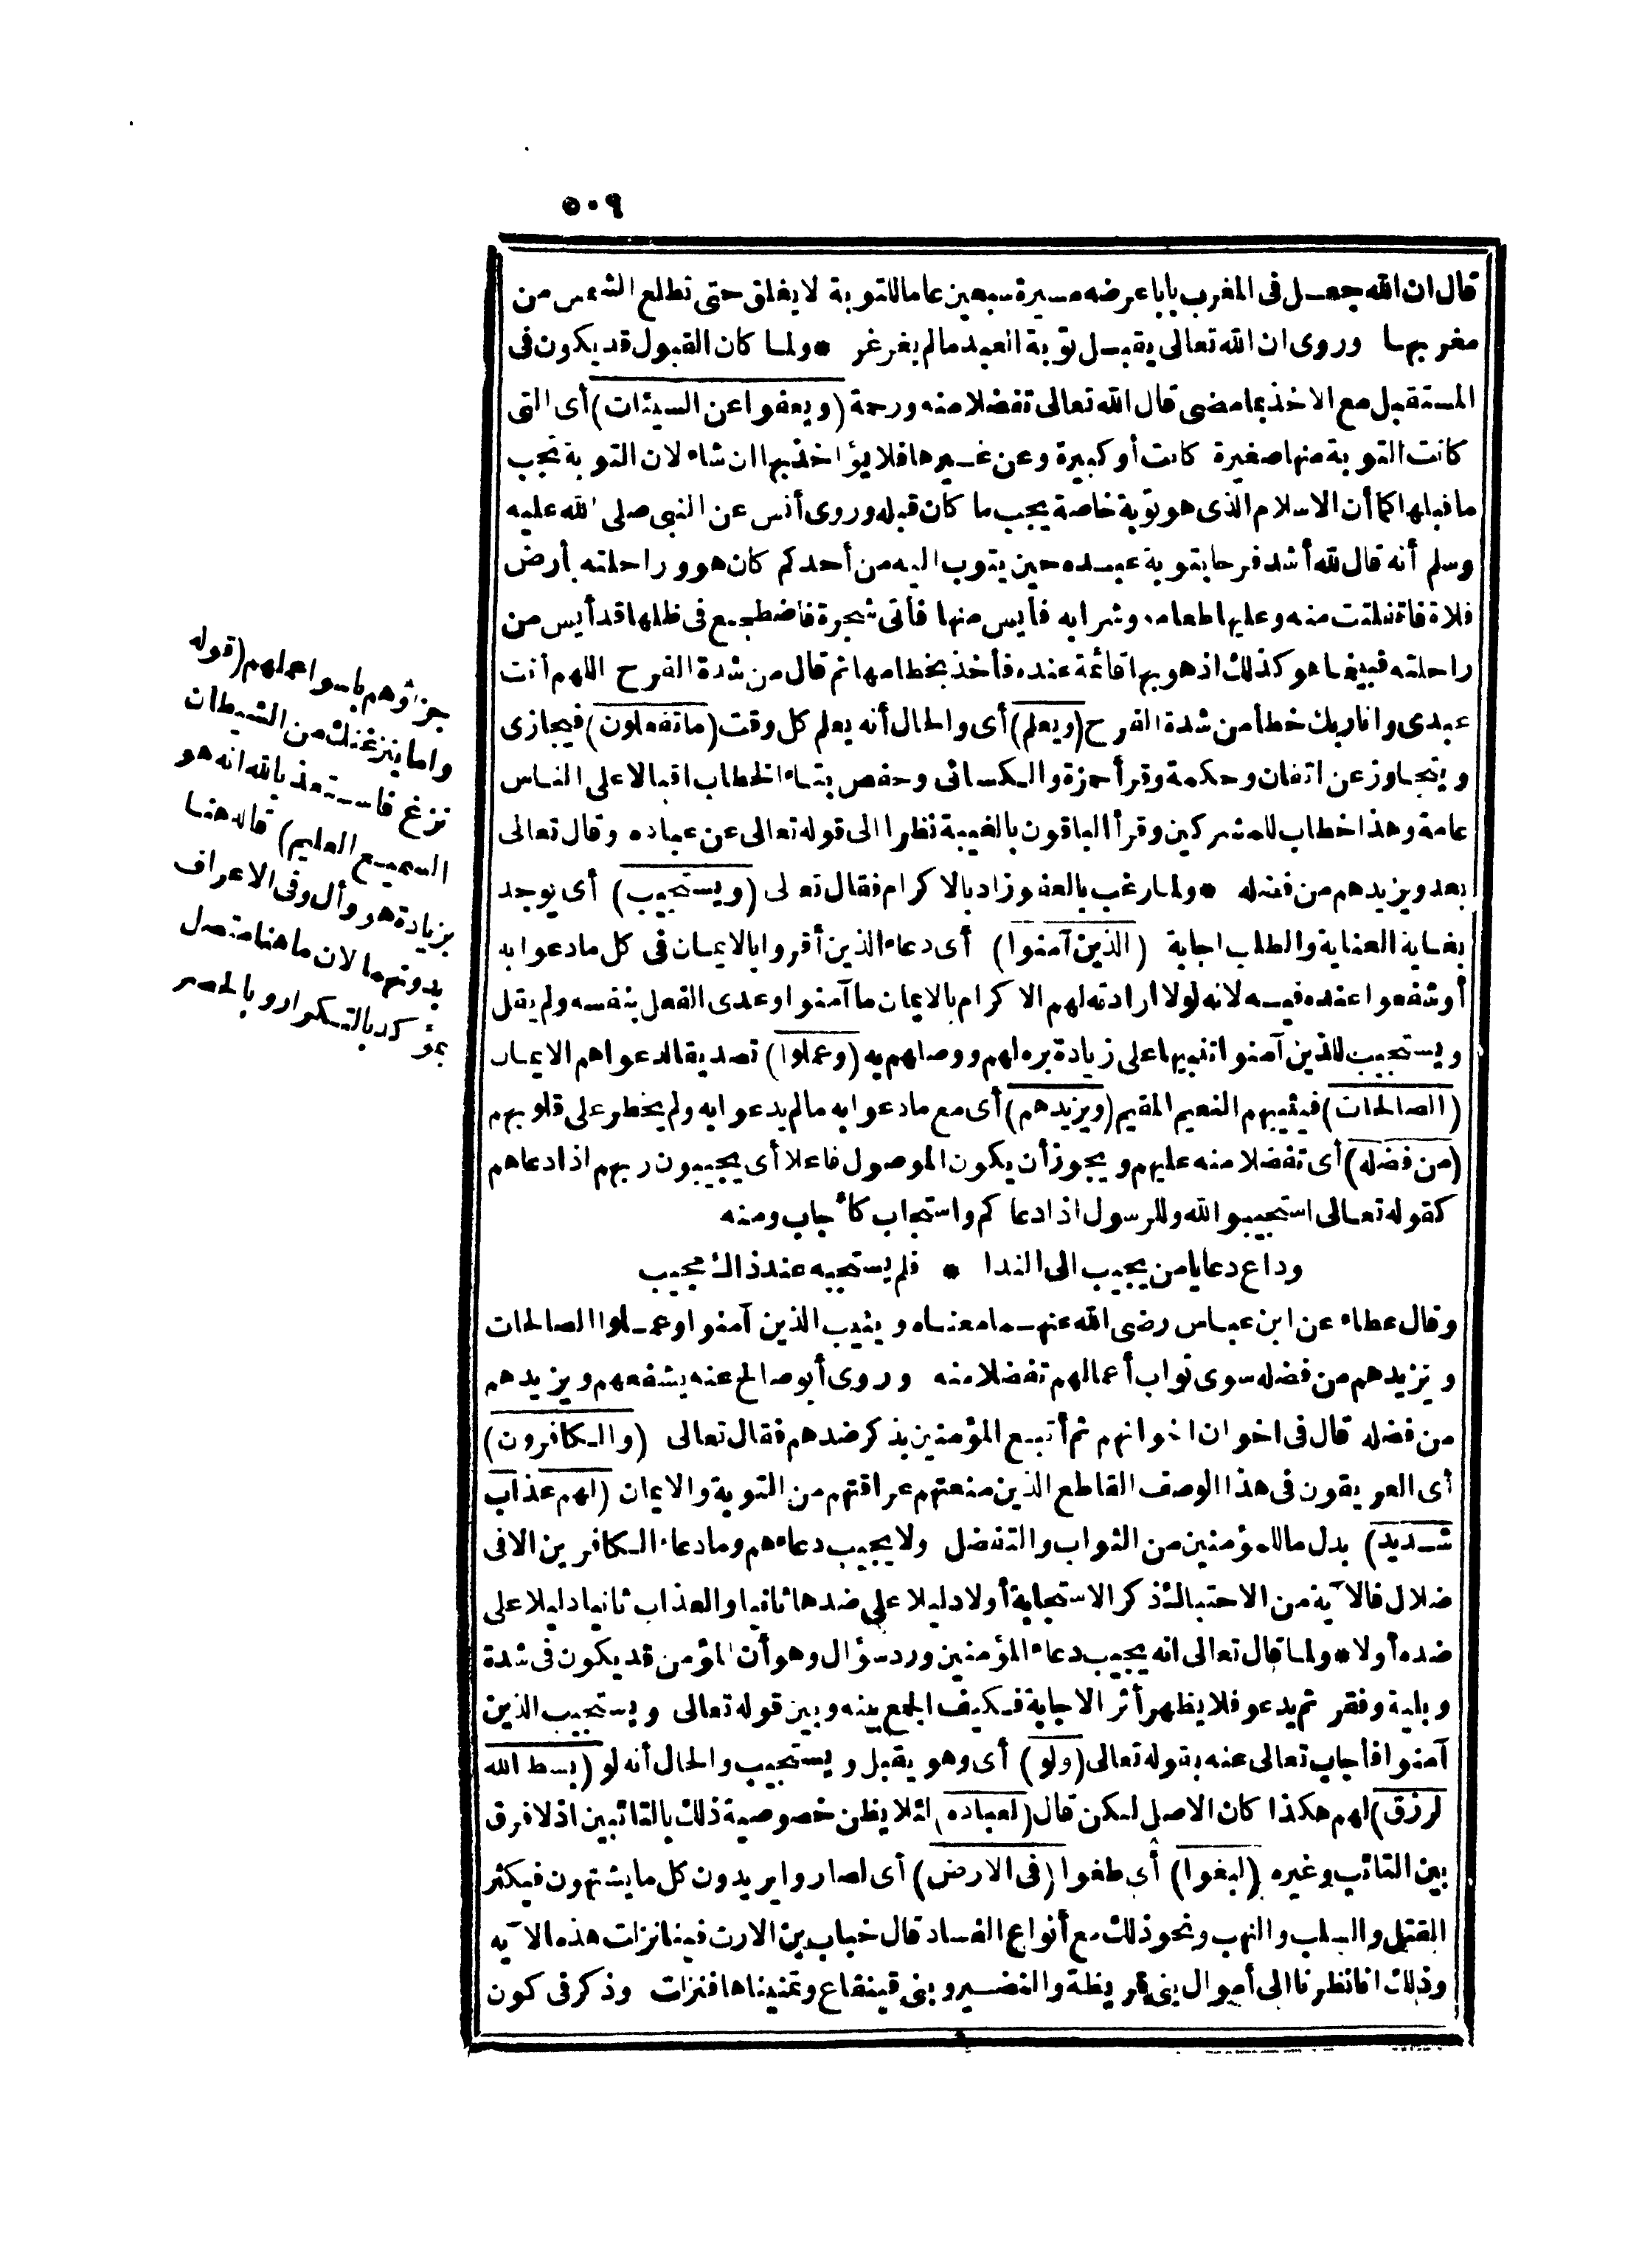 ٥٠٩
قال ان الله جعل فى المغرب بابا عرضه مسيرة سبعين عاما للتوبة لا يغلق حتى تطلع الشمس من
مغربها وروى ان الله تعالى يقبل توبة العبد مالم يغرغر * ولما كان القبول قد يكون فى
المستقبل مع الاخذ بما مضى قال الله تعالى تفضلا منه ورحمة (ويعفوا عن السيئات) أى التى
كانت التوبة منها صغيرة كانت أو كبيرة وعن غيرها فلا يؤاخذ بها ان شاء لان التوبة تجب
ما قبلها كما أن الاسلام الذى هو توبة خاصة يجب ما كان قبله وروى أنس عن النبى صلى الله عليه
وسلم أنه قال لله أشد فرحا بتوبة عبده حين يتوب اليه من أحدكم كان هو وراحلته بأرض
فلاة فانفلتت منه وعليها طعامه وشرابه فأيس منها فأتى شجرة فاضطجع فى ظلها قد أيس من
راحلته فبينما هو كذلك اذ هو بها قائمة عنده فأخذ بخطامها ثم قال من شدة الفرح اللهم أنت
عبدى وانا ربك خطأ من شدة الفرح (ويعلم) أى والحال أنه يعلم كل وقت (ما تفعلون) فيجازى
ويتجاوز عن اتقان وحكمة وقرأ حمزة والكسائى وحفص بتاء الخطاب اقبالا على الناس
عامة وهذا خطاب للمشركين وقرأ الباقون بالغيبة نظرا الى قوله تعالى عن عباده وقال تعالى
بعد ويزيدهم من فضله * ولما رغب بالعفو زاد بالاكرام فقال تعالى (ويستجيب) أى يوجد
بغاية العناية والطلب اجابة (الذين آمنوا) أى دعاء الذين أقروا بالايمان فى كل ما دعوا به
أو شفعوا عنده فيه لانه لولا ارادته لهم الاكرام بالايمان ما آمنوا وعدى الفعل بنفسه ولم يقل
ويستجيب للذين آمنوا تنبيها على زيادة بره لهم ووصلهم به (وعملوا) تصديقا لدعواهم الايمان
(الصالحات) فيثيبهم النعيم المقيم (ويزيدهم) أى مع ما دعوا به مالم يدعوا به ولم يخطر على قلوبهم
(من فضله) أى تفضلا منه عليهم ويجوز أن يكون الموصول فاعلا أى يجيبون ربهم اذا دعاهم
كقوله تعالى استجيبوا لله وللرسول اذا دعاكم واستجاب كأجاب ومنه
وداع دعا يا من يجيب الى الندا * فلم يستجبه عند ذاك مجيب
وقال عطاء عن ابن عباس رضى الله عنهما معناه ويثيب الذين آمنوا وعملوا الصالحات
ونزيدهم من فضله سوى ثواب أعمالهم تفضلا منه وروى أبو صالح عنه يشفعهم ويزيدهم
من فضله قال فى اخوان اخوانهم ثم أتبع المؤمنين بذكر ضدهم فقال تعالى (والكافرون)
أى العريقون فى هذا الوصف القاطع الذين منعتهم عراقتهم من التوبة والايمان (لهم عذاب
شديد) بدل ما للمؤمنين من الثواب والتفضل ولا يجيب دعاءهم وما دعاء الكافرين الا فى
ضلال فالآية من الاحتباك ذكر الاستجابة أولا دليلا على ضدها ثانيا والعذاب ثانيا دليلا على
ضده أولا * ولما قال تعالى انه يجيب دعاء المؤمنين ورد سؤال وهو أن المؤمن قد يكون فى شدة
وبلية وفقر ثم يدعو فلا يظهر أثر الاجابة فكيف الجمع بينه وبين قوله تعالى ويستجيب الذين
آمنوا فأجاب تعالى عنه بقوله تعالى (ولو) أى وهو يقبل ويستجيب والحال أنه لو (بسط الله
الرزق) لهم هكذا كان الاصل لكن قال (لعباده) لئلا يظن خصوصية ذلك بالتائبين اذ لا فرق
بين التائب وغيره (لبغوا) أى طغوا (فى الارض) أى لصاروا يريدون كل ما يشتهون فيكثر
القتل والسلب والنهب ونحو ذلك مع أنواع الفساد قال خباب بن الارت فينا نزلت هذه الآية
وذلك انا نظرنا الى أموال بنى قريظة والنضير وبنى قينقاع وتمنيناها فنزلت وذكر فى كون
جزاؤهم باسوا عملهم (قوله
واما ينزغنك من الشيطان
نزغ فاستعذ بالله انه هو
السميع العليم) قاله هنا
بزيادة هو وأل وفى الاعراف
بدونهما لان ما هنا متصل
بمؤكد بالتكرار وبالحصر